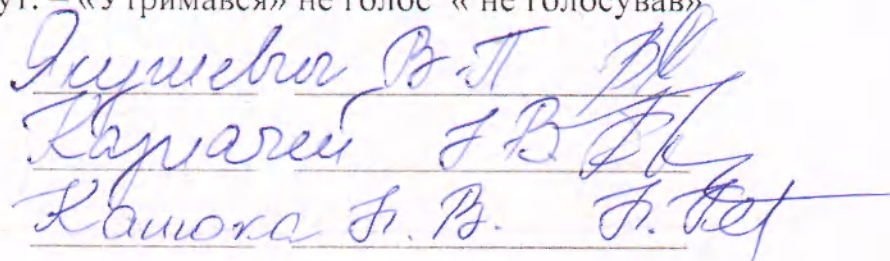 ут. – «Утримався» не голос « не голосував»
Якушевич В.П.
Казначей Н В
Капюка Н. В.